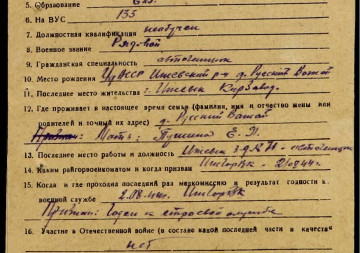 5. Образование
6. На ВУС 133
7. Должностная квалификация необучен
8. Военное звание Рядовой
9. Гражданская специальность
10. Место рождения УАССР Ижевский р-н д. Русский Вожой
11. Последнее место жительства г. Ижевск
12. Где проживает в настоящее время семья (фамилия, имя и отчество жены или
родителей и точный их адрес) д. Русский Вожой
Мать: Е. П.
13. Последнее место работы и должность Ижевск
14. Каким райгорвоенкоматом и когда призван
15. Когда и где проходил последний раз медкомиссию и результат годности к
военной службе 2.08.44г.
Признан: Годен к строевой службе
16. Участие в Отечественной войне (в составе какой последней части и качества
нет